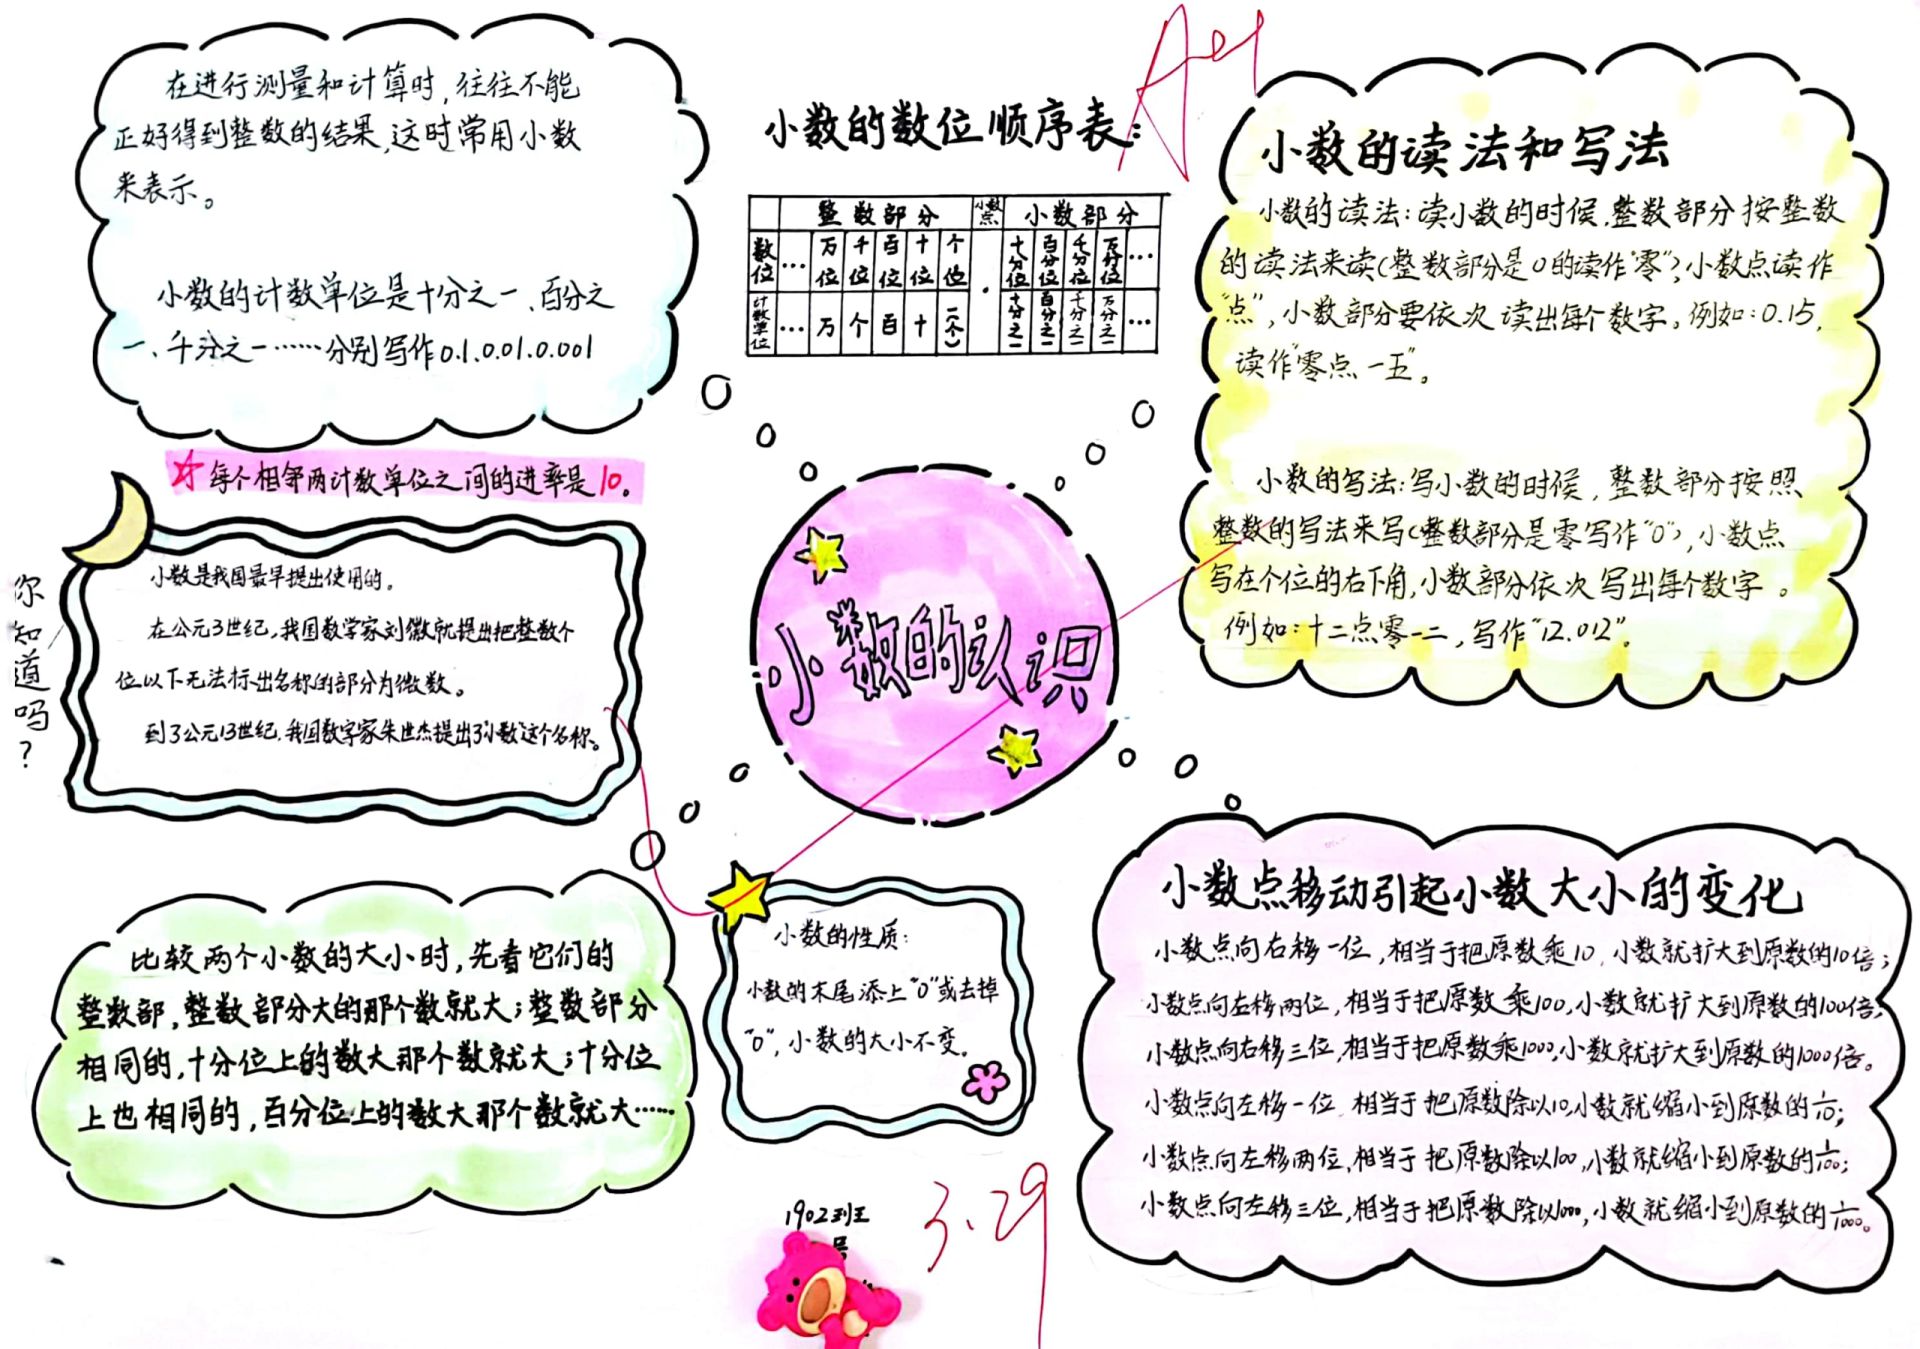 在进行测量和计算时,往往不能
正好得到整数的结果,这时常用小数
来表示。
小数的计数单位是十分之一、百分之
一、千分之一……分别写作0.1.0.01.0.001
☆每个相邻两计数单位之间的进率是10。
小数的数位顺序表:
整数部分 小数点 小数部分
数位 … 万位 千位 百位 十位 个位 · 十分位 百分位 千分位 万分位 …
计数单位 … 万 个 百 十 一(个) 十分之一 百分之一 千分之一 万分之一 …
A+
小数的读法和写法
小数的读法:读小数的时候,整数部分按整数
的读法来读(整数部分是0的读作"零"),小数点读作
"点",小数部分要依次读出每个数字。例如:0.15,
读作"零点一五"。
小数的写法:写小数的时候,整数部分按照
整数的写法来写(整数部分是零写作"0"),小数点
写在个位的右下角,小数部分依次写出每个数字。
例如:十二点零一二,写作"12.012"。
你知道吗?
小数是我国最早提出使用的。
在公元3世纪,我国数学家刘徽就提出把整数个
位以下无法标出名称的部分为微数。
到了公元13世纪,我国数字家朱世杰提出了"小数"这个名称。
小数的认识
比较两个小数的大小时,先看它们的
整数部,整数部分大的那个数就大;整数部分
相同的,十分位上的数大那个数就大;十分位
上也相同的,百分位上的数大那个数就大……
小数的性质:
小数的末尾添上"0"或去掉
"0",小数的大小不变。
小数点移动引起小数大小的变化
小数点向右移一位,相当于把原数乘10,小数就扩大到原数的10倍;
小数点向左移两位,相当于把原数乘100,小数就扩大到原数的100倍;
小数点向右移三位,相当于把原数乘1000,小数就扩大到原数的1000倍。
小数点向左移一位,相当于把原数除以10,小数就缩小到原数的1/10;
小数点向左移两位,相当于把原数除以100,小数就缩小到原数的1/100;
小数点向左移三位,相当于把原数除以1000,小数就缩小到原数的1/1000。
1902班王
号
3.29